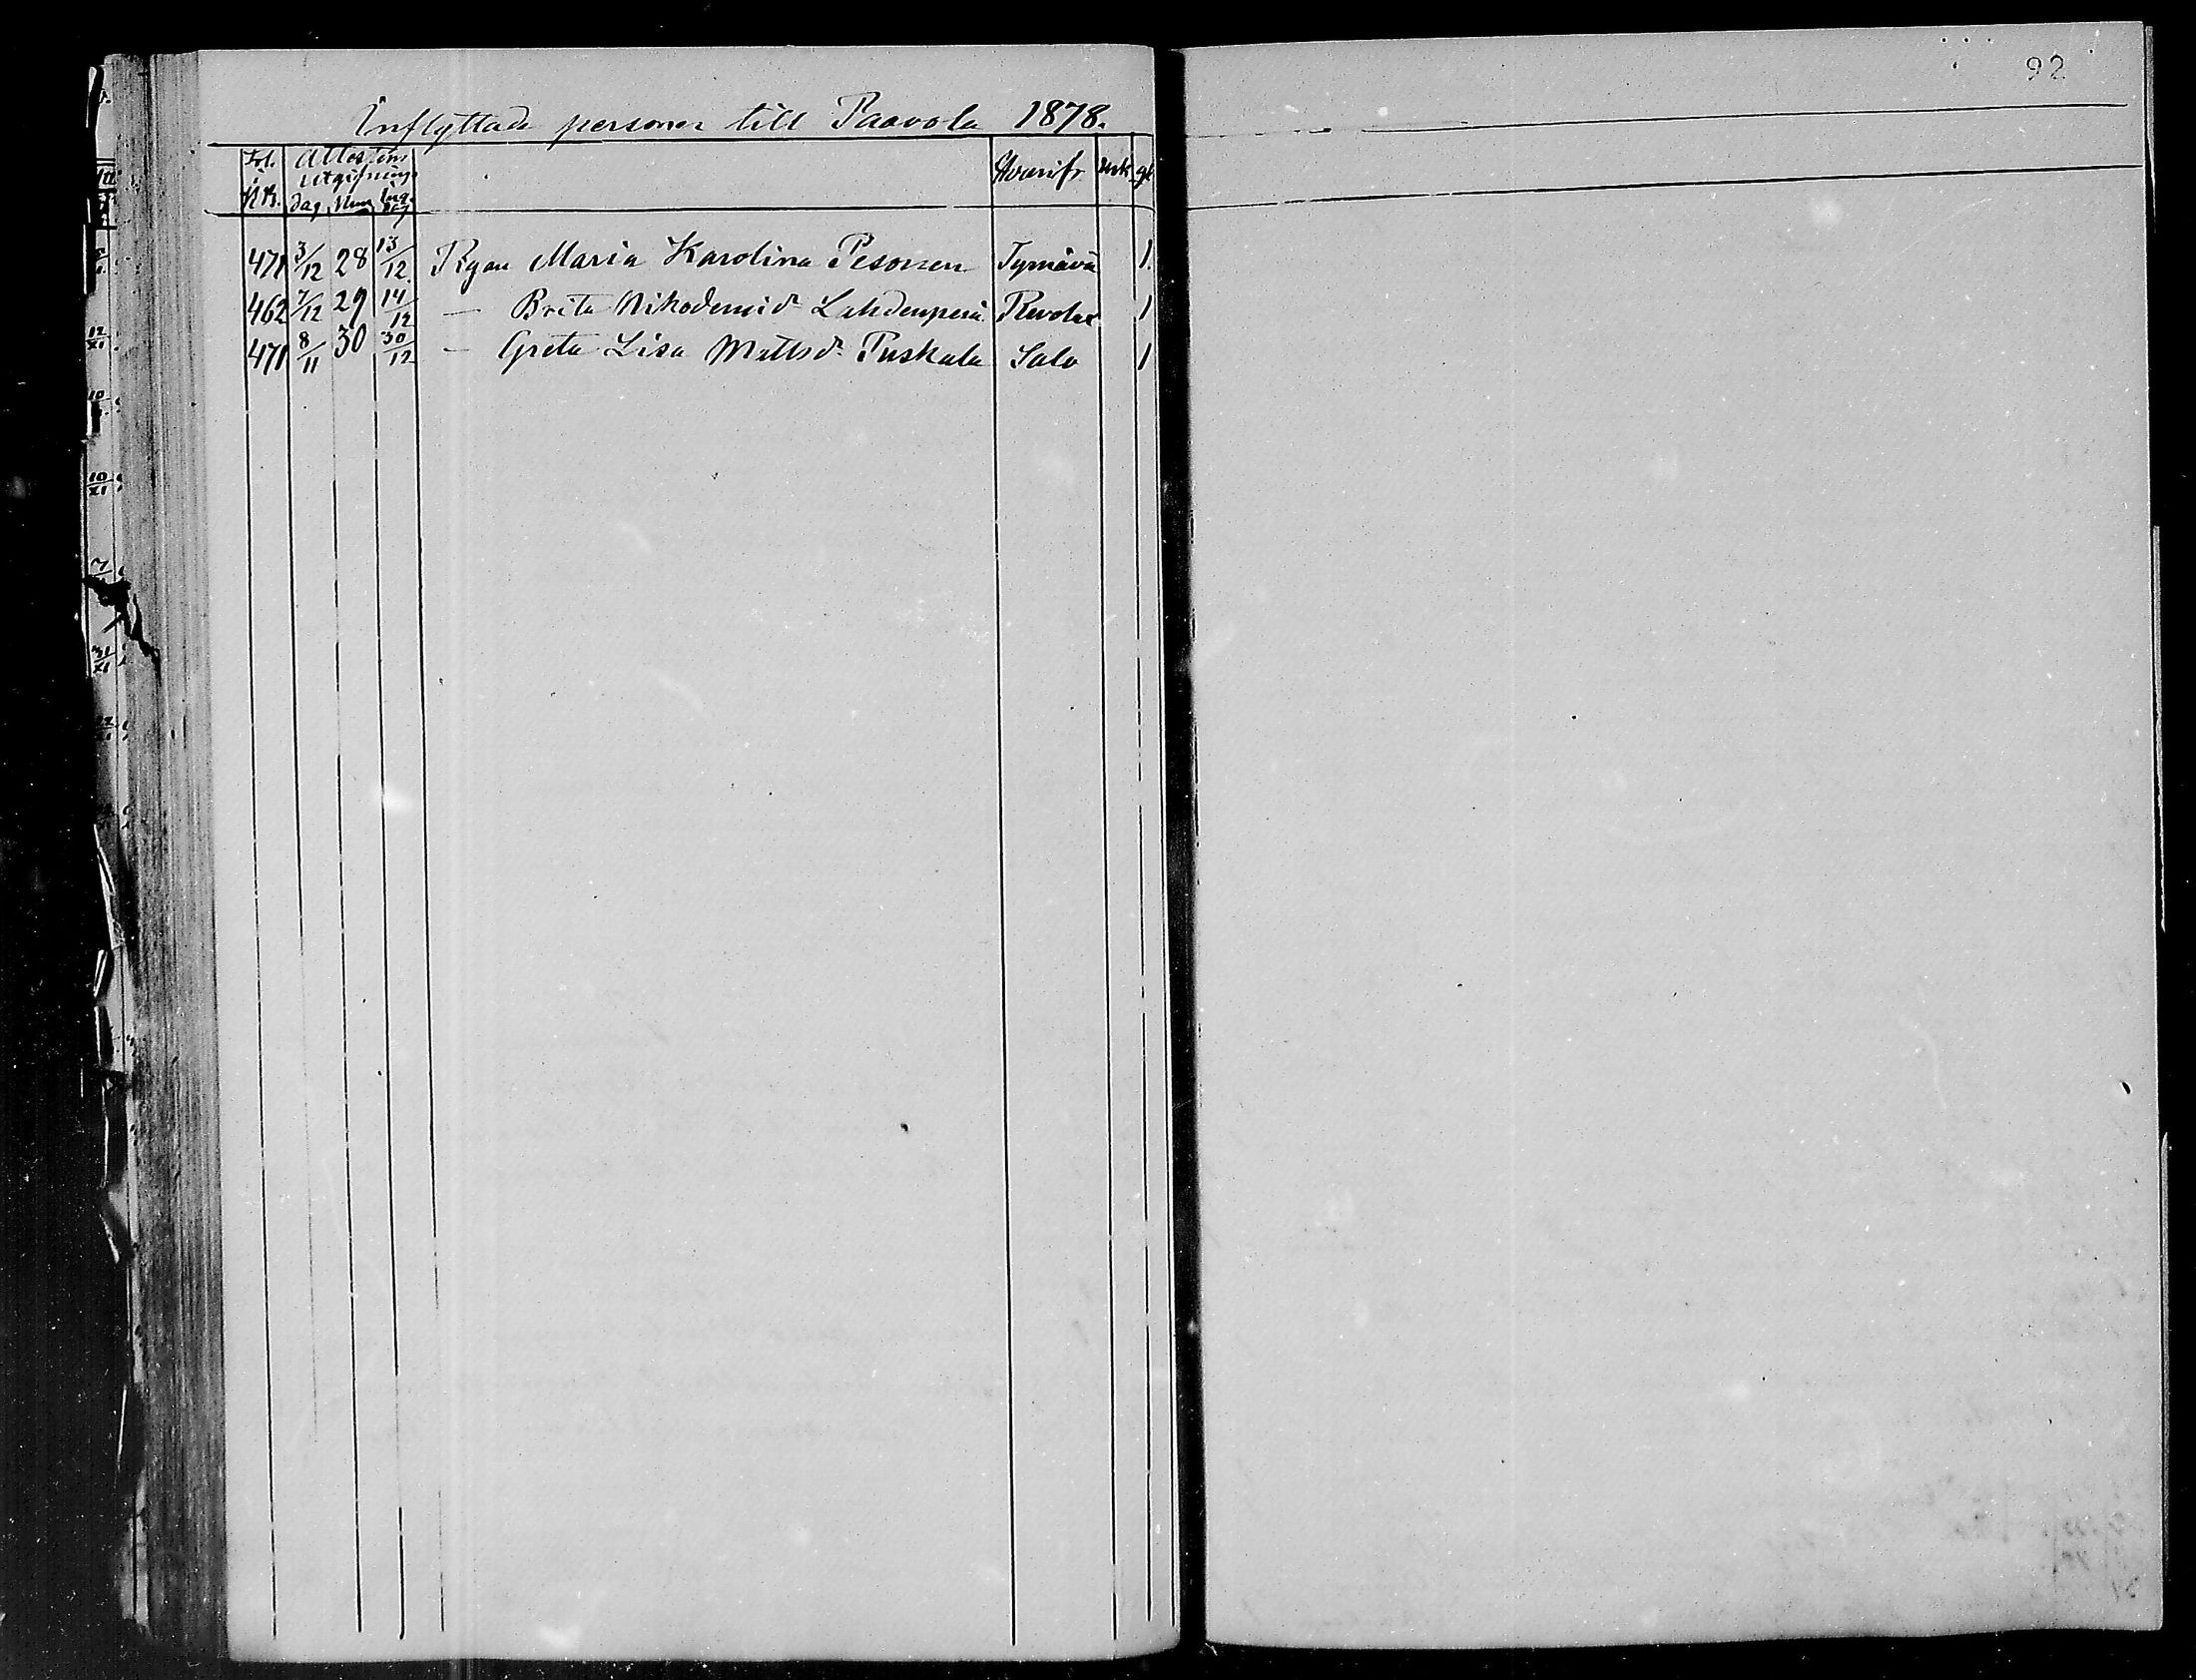 92
Inflyttade personer till Paavola 1878.
Fol. Attestens Hvarifr. mk. qk
utgifning
N:o. dag. Num.
471 3/12 28 13/12 Pigan Maria Karolina Pesonen Tyrnävä 1.
462 7/12 29 14/12 — Brita Nikodemid:r Lahdenperä Revolax 1
471 8/11 30 30/12 — Greta Lisa Mattsd:r Puskala Salo 1